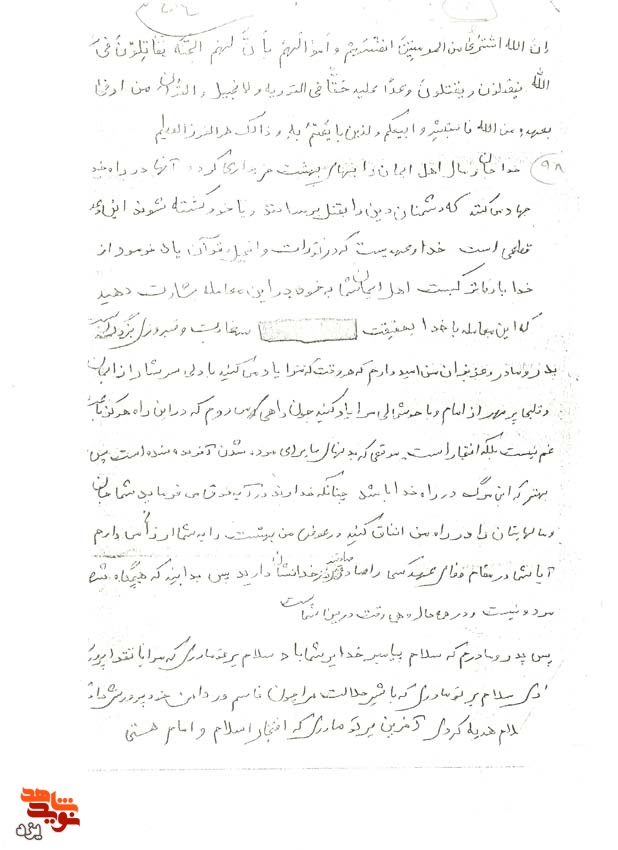 ان الله اشتری من المومنین انفسهم و اموالهم بأن لهم الجنه یقاتلون فی
الله فیقتلون و یقتلون وعدا علیه حقا فی التوریه و لانجیل و القرآن من اوفی
بعهده من الله فا ستبشروا ببیعکم ولذین با یعتم به و ذالک هو الفوز العظیم
۹۸ خدا جان و مال اهل ایمان را ببهای بهشت خریداری کرده آنها در راه خدا
جهاد می کنند که دشمنان دین را بقتل برسانند و یا خود کشته شوند این وعده
قطعی است خدا و عهدیست که در تورات و انجیل و قرآن یاد فرمود از
خدا با وفاتر کیست اهل ایمان شما به خود در این معامله بشارت دهید
که این معامله با خدا بحقیقت سعادت و فیروزی بزرگ است
پدر و مادر و عزیزان من امیدوارم که هر وقت که مرا یاد می کنید با دلی سرشار از ایمان
و قلبی پر مهر از امام و با خوشحالی مرا یاد کنید چون راهی که می روم که در این راه هرگز جای
غم نیست بلکه افتخار است موقعی که بدنهای ما برای مردن شدن آفریده شده است پس
بهتر که این مرگ در راه خدا باشد چنانکه خداوند در آیه فوق می فرماید شما جان
و مالهایتان را در راه من انفاق کنید در عوض من بهشت را به شما ارزانی می دارم
آیا شما در مقام وفای عهد کسی را صادقتر از خدا نشان دارید پس بدانید که هیچگاه
مرده نیست و در همه حال و هر وقت در بین شماست
پس پدر و مادرم که سلام پیامبر خدا بر شما باد سلام بر تو مادری که مرا با
سلام بر تو مادری که با شیر حلالت مرا چون قاسم در دامن خود پرورش داد
هدیه کردی آفرین بر تو مادری که افتخار اسلام و امام هستی
نوید شاهد
یزد